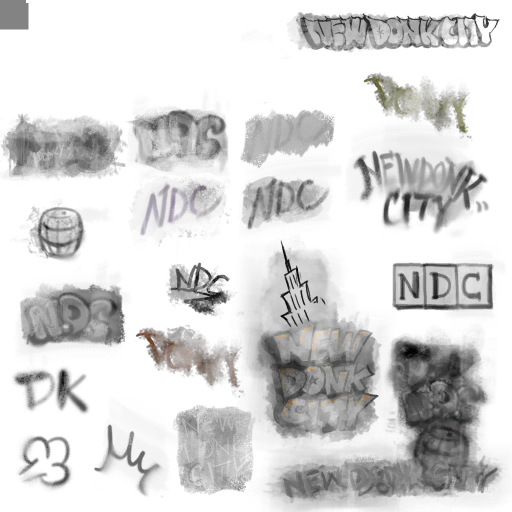 NEW DONK CITY
NDC
NDC
NEW DONK
CITY
NDC
NDC
NDC
NDC
NDC
NEW
DONK
CITY
DK
NEW
DONK
CITY
NEW DONK CITY